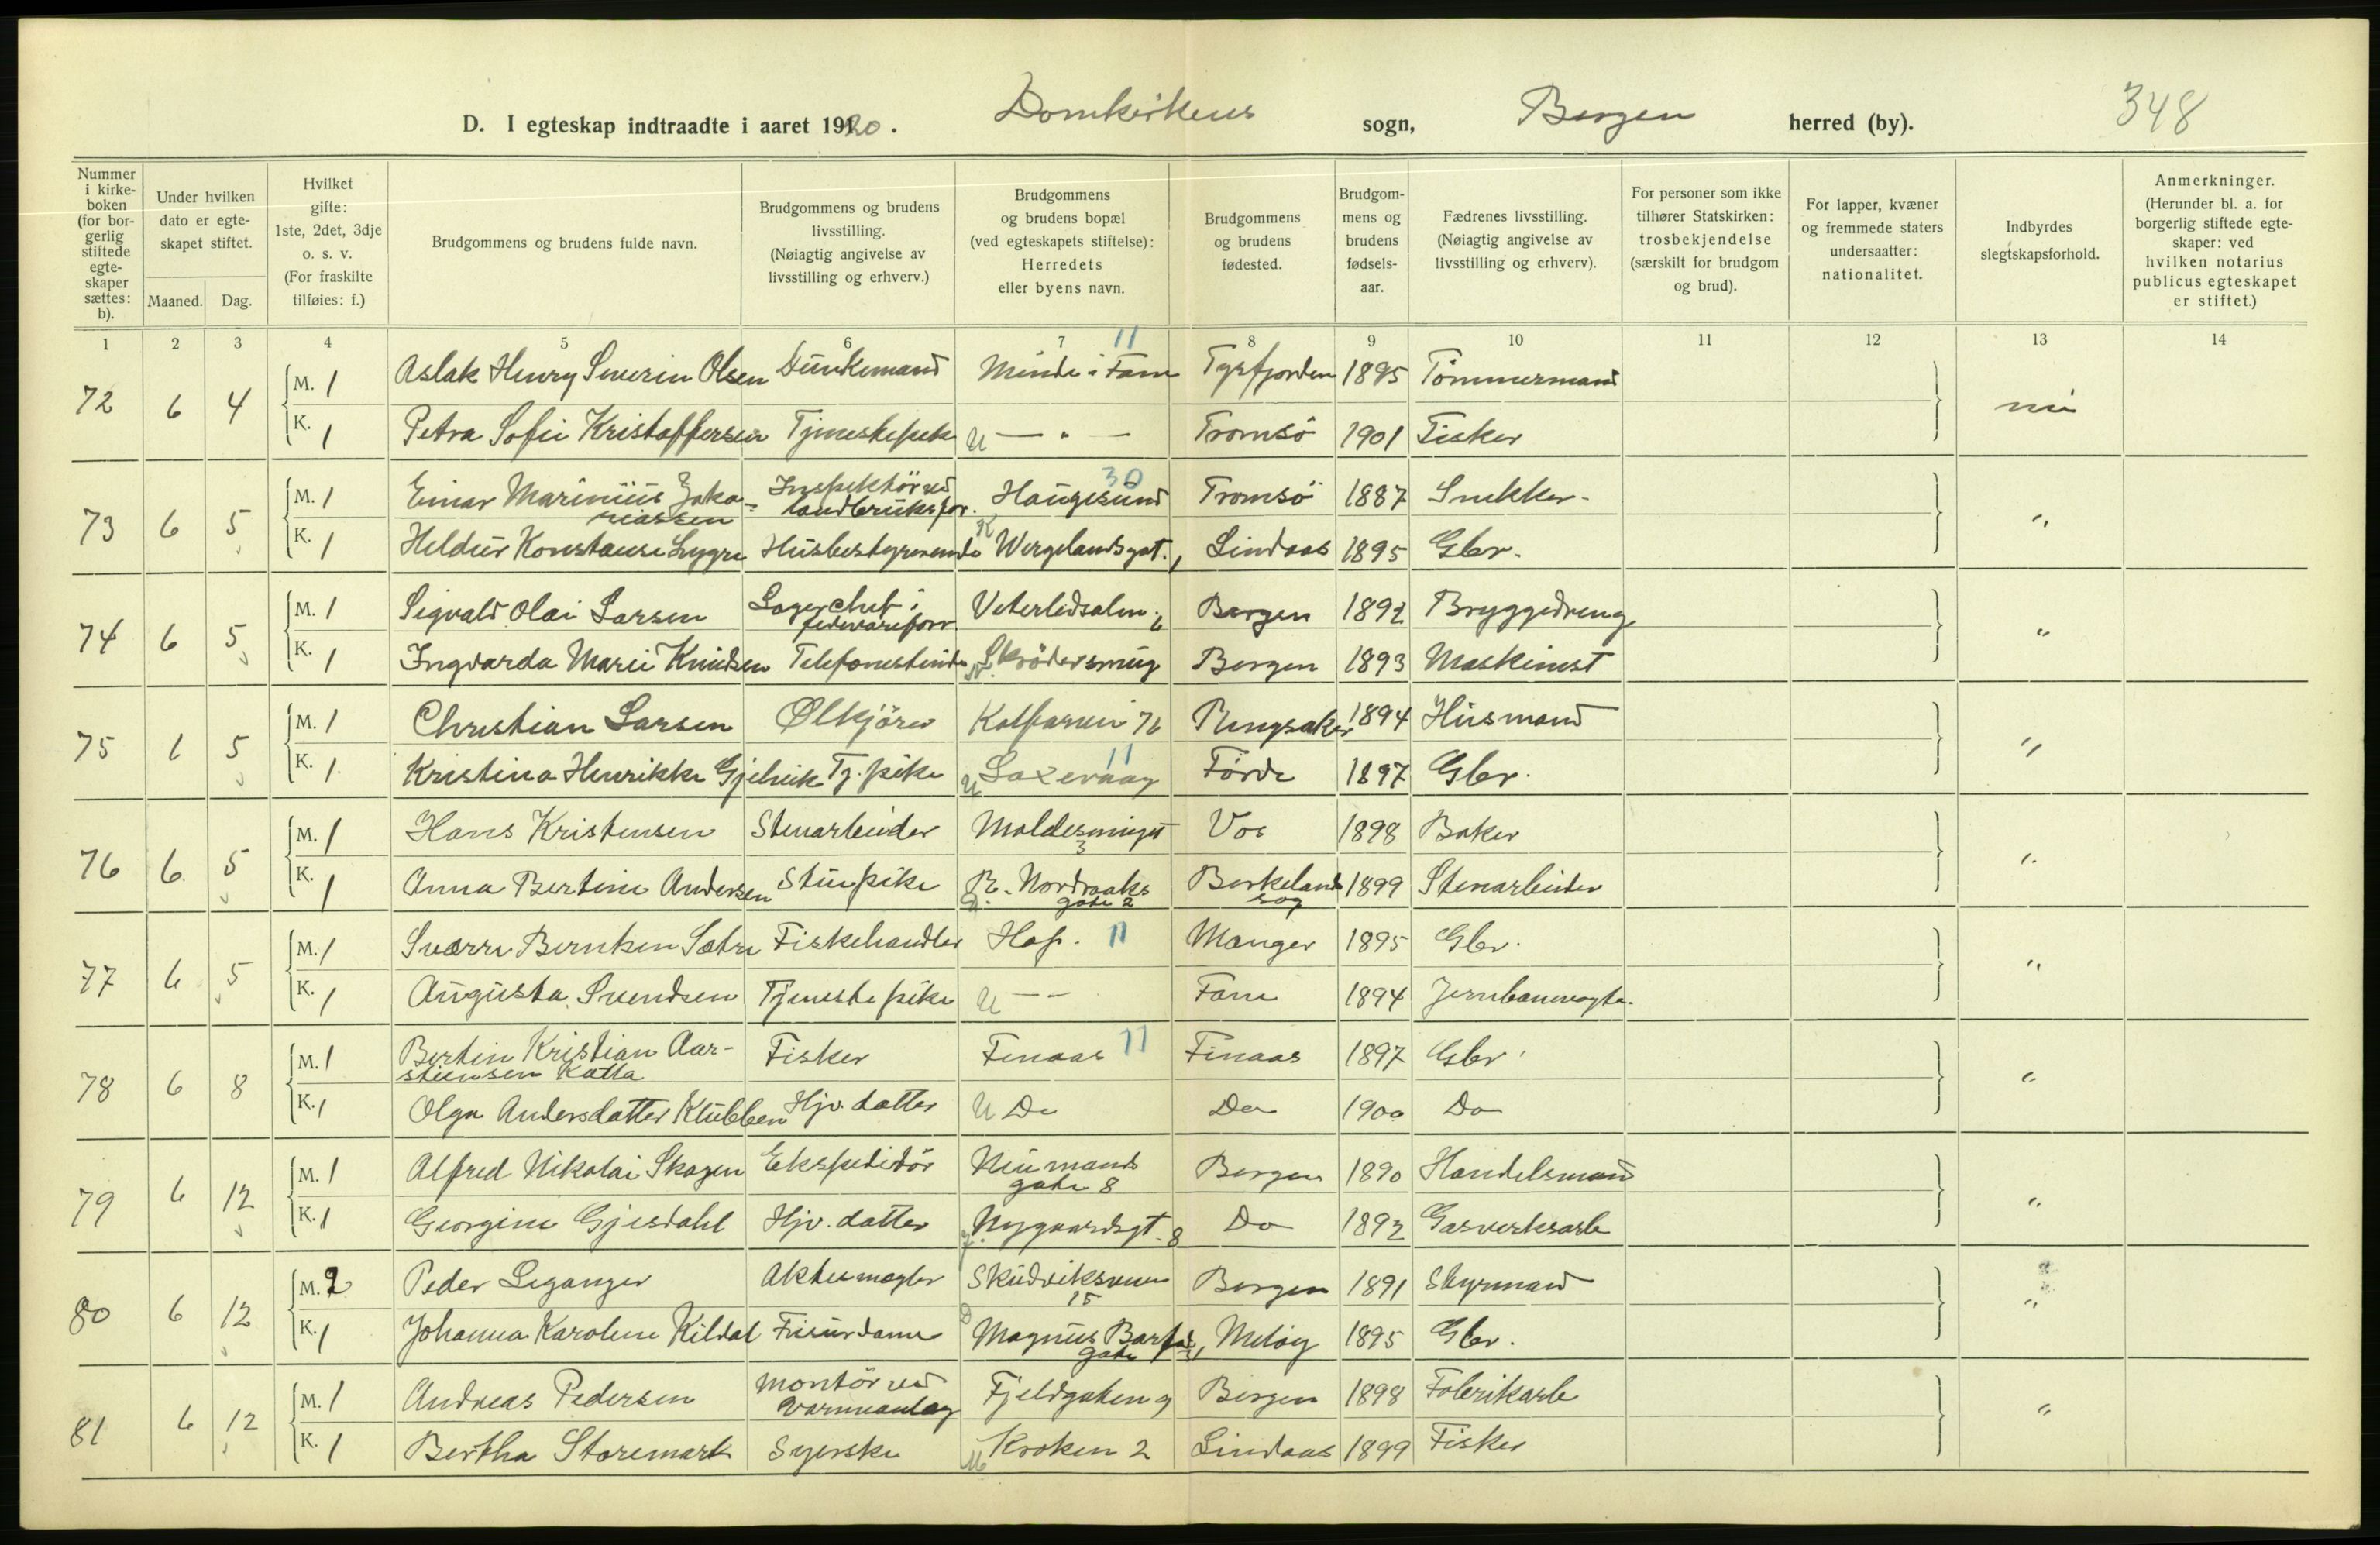 348
D. I egteskap indtraadte i aaret 1920. Domkirkens sogn, Bergen herred (by).
Nummer i kirkeboken (for borgerlig stiftede egteskaper sættes: b).
Under hvilken dato er egteskapet stiftet.
Maaned. Dag.
Hvilket gifte: 1ste, 2det, 3dje o. s. v. (For fraskilte tilføies: f.)
Brudgommens og brudens fulde navn.
Brudgommens og brudens livsstilling. (Nøiagtig angivelse av livsstilling og erhverv.)
Brudgommens og brudens bopæl (ved egteskapets stiftelse): Herredets eller byens navn.
Brudgommens og brudens fødested.
Brudgommens og brudens fødselsaar.
Fædrenes livsstilling. (Nøiagtig angivelse av livsstilling og erhverv).
For personer som ikke tilhører Statskirken: trosbekjendelse (særskilt for brudgom og brud).
For lapper, kvæner og fremmede staters undersaatter: nationalitet.
Indbyrdes slegtskapsforhold.
Anmerkninger. (Herunder bl. a. for borgerlig stiftede egteskaper: ved hvilken notarius publicus egteskapet er stiftet.)
1 2 3 4 5 6 7 8 9 10 11 12 13 14
72 6 4 M. 1 Aslak Henry Severin Olsen Dunkemand Minde i Fane 11 Tysfjorden 1895 Tömmermand
K. 1 Petra Sofie Kristoffersen Tjenestepike U — " — Tromsö 1901 Fisker
73 6 5 M. 1 Einar Marinius Zakariassen Inspektör ved landbruksfor. Haugesund 30 Tromsö 1887 Snekker "
K. 1 Heldur Konstanse Lygre Husbestyrerinde K Wergelandsgat. Lindaas 1895 Gbr.
74 6 5 M. 1 Sigvald Olai Larsen Lagerchef i Bergen 1892 Bryggedreng "
K. 1 Ingvarda Marie Knudsen Telefonistinde Skrödersmug Bergen 1893 Maskinist
75 6 5 M. 1 Christian Larsen Ølkjörer Kalfarvei 76 Ringsaker 1894 Husmand "
K. 1 Kristina Henrikke Gjelvik Tj. pike U Laxevaag 11 Förde 1897 Gbr.
76 6 5 M. 1 Hans Kristensen Stenarbeider Moldesmuget 3 Vos 1898 Baker "
K. 1 Anna Bertine Andersen Stuepike R. Nordraaks gate 2 Birkeland sog 1899 Stenarbeider
77 6 5 M. 1 Sverre Berntsen Sætre Fiskehandler Hop. 11 Manger 1895 Gbr. "
K. 1 Augusta Svendsen Tjenestepike U — — Fane 1894 Jernbanevogte.
78 6 8 M. 1 Bertin Kristian Aarstiensen Katla Fisker Finaas 11 Finaas 1897 Gbr. "
K. 1 Olga Andersdatter Klubben Hjv. datter U Do Do 1900 Do
79 6 12 M. 1 Alfred Nikolai Skagen Ekspeditör Neumands gate 8 Bergen 1890 Handelsmand "
K. 1 Georgine Gjesdahl Hjv. datter Nygaardsgt. 8 Do 1892 Gasverksarb
80 6 12 M. 2 Peder Leganger Aktiemægler Skudviksveien 15 Bergen 1891 Styrmand "
K. 1 Johanna Karoline Kildal Frisørdame Magnus Barfots gate Meløy 1895 Gbr.
81 6 12 M. 1 Andreas Pedersen Montör ved varmeanlæg Fjeldgaten 9 Bergen 1898 Fabrikarb "
K. 1 Bertha Storemark Syerske M Kroken 2 Lindaas 1899 Fisker